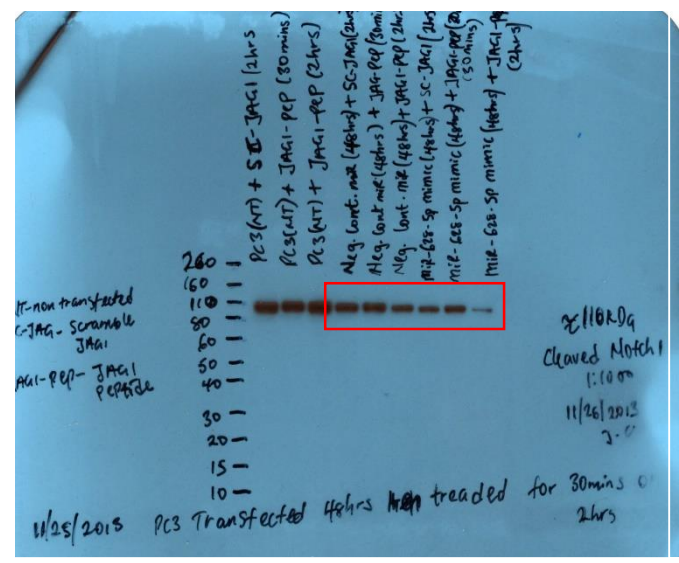 PC3(NT) + SC-JAG1 (2hrs
PC3(NT) + JAG1-PEP (30mins)
PC3(NT) + JAG1-PEP (2hrs)
Neg. Cont. miR (48hrs) + SC-JAG1 (2hrs
Neg. Cont miR (48hrs) + JAG-PEP (30min
Neg. Cont. miR (48hrs) + JAG1-PEP (2hr
miR-628-5p mimic (48hrs) + SC-JAG1 (2hrs
miR-628-5p mimic (48hrs) + JAG1-PEP
(30mins)
miR-628-5p mimic (48hrs) + JAG1-
(2hrs)
260
160
110
80
60
50
40
30
20
15
10
-non transfected
-JAG- Scramble
JAG1
JAG1-PEP- JAG1
Peptide
110KDa
Cleaved Notch1
1:1000
11/26/2013
11/25/2013 PC3 Transfected 48hrs treaded for 30mins
2hrs